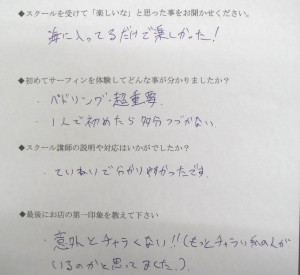 ◆スクールを受けて「楽しいな」と思った事をお聞かせください。
海に入ってるだけで楽しかった!
◆初めてサーフィンを体験してどんな事が分かりましたか?
・パドリング・超重要
・1人で初めたら多分つづかない
◆スクール講師の説明や対応はいかがでしたか?
ていねいで分かりやすかったです.
◆最後にお店の第一印象を教えて下さい
・意外とチャラくない!!(もっとチャラい私の人が
いるのかと思ってました.)